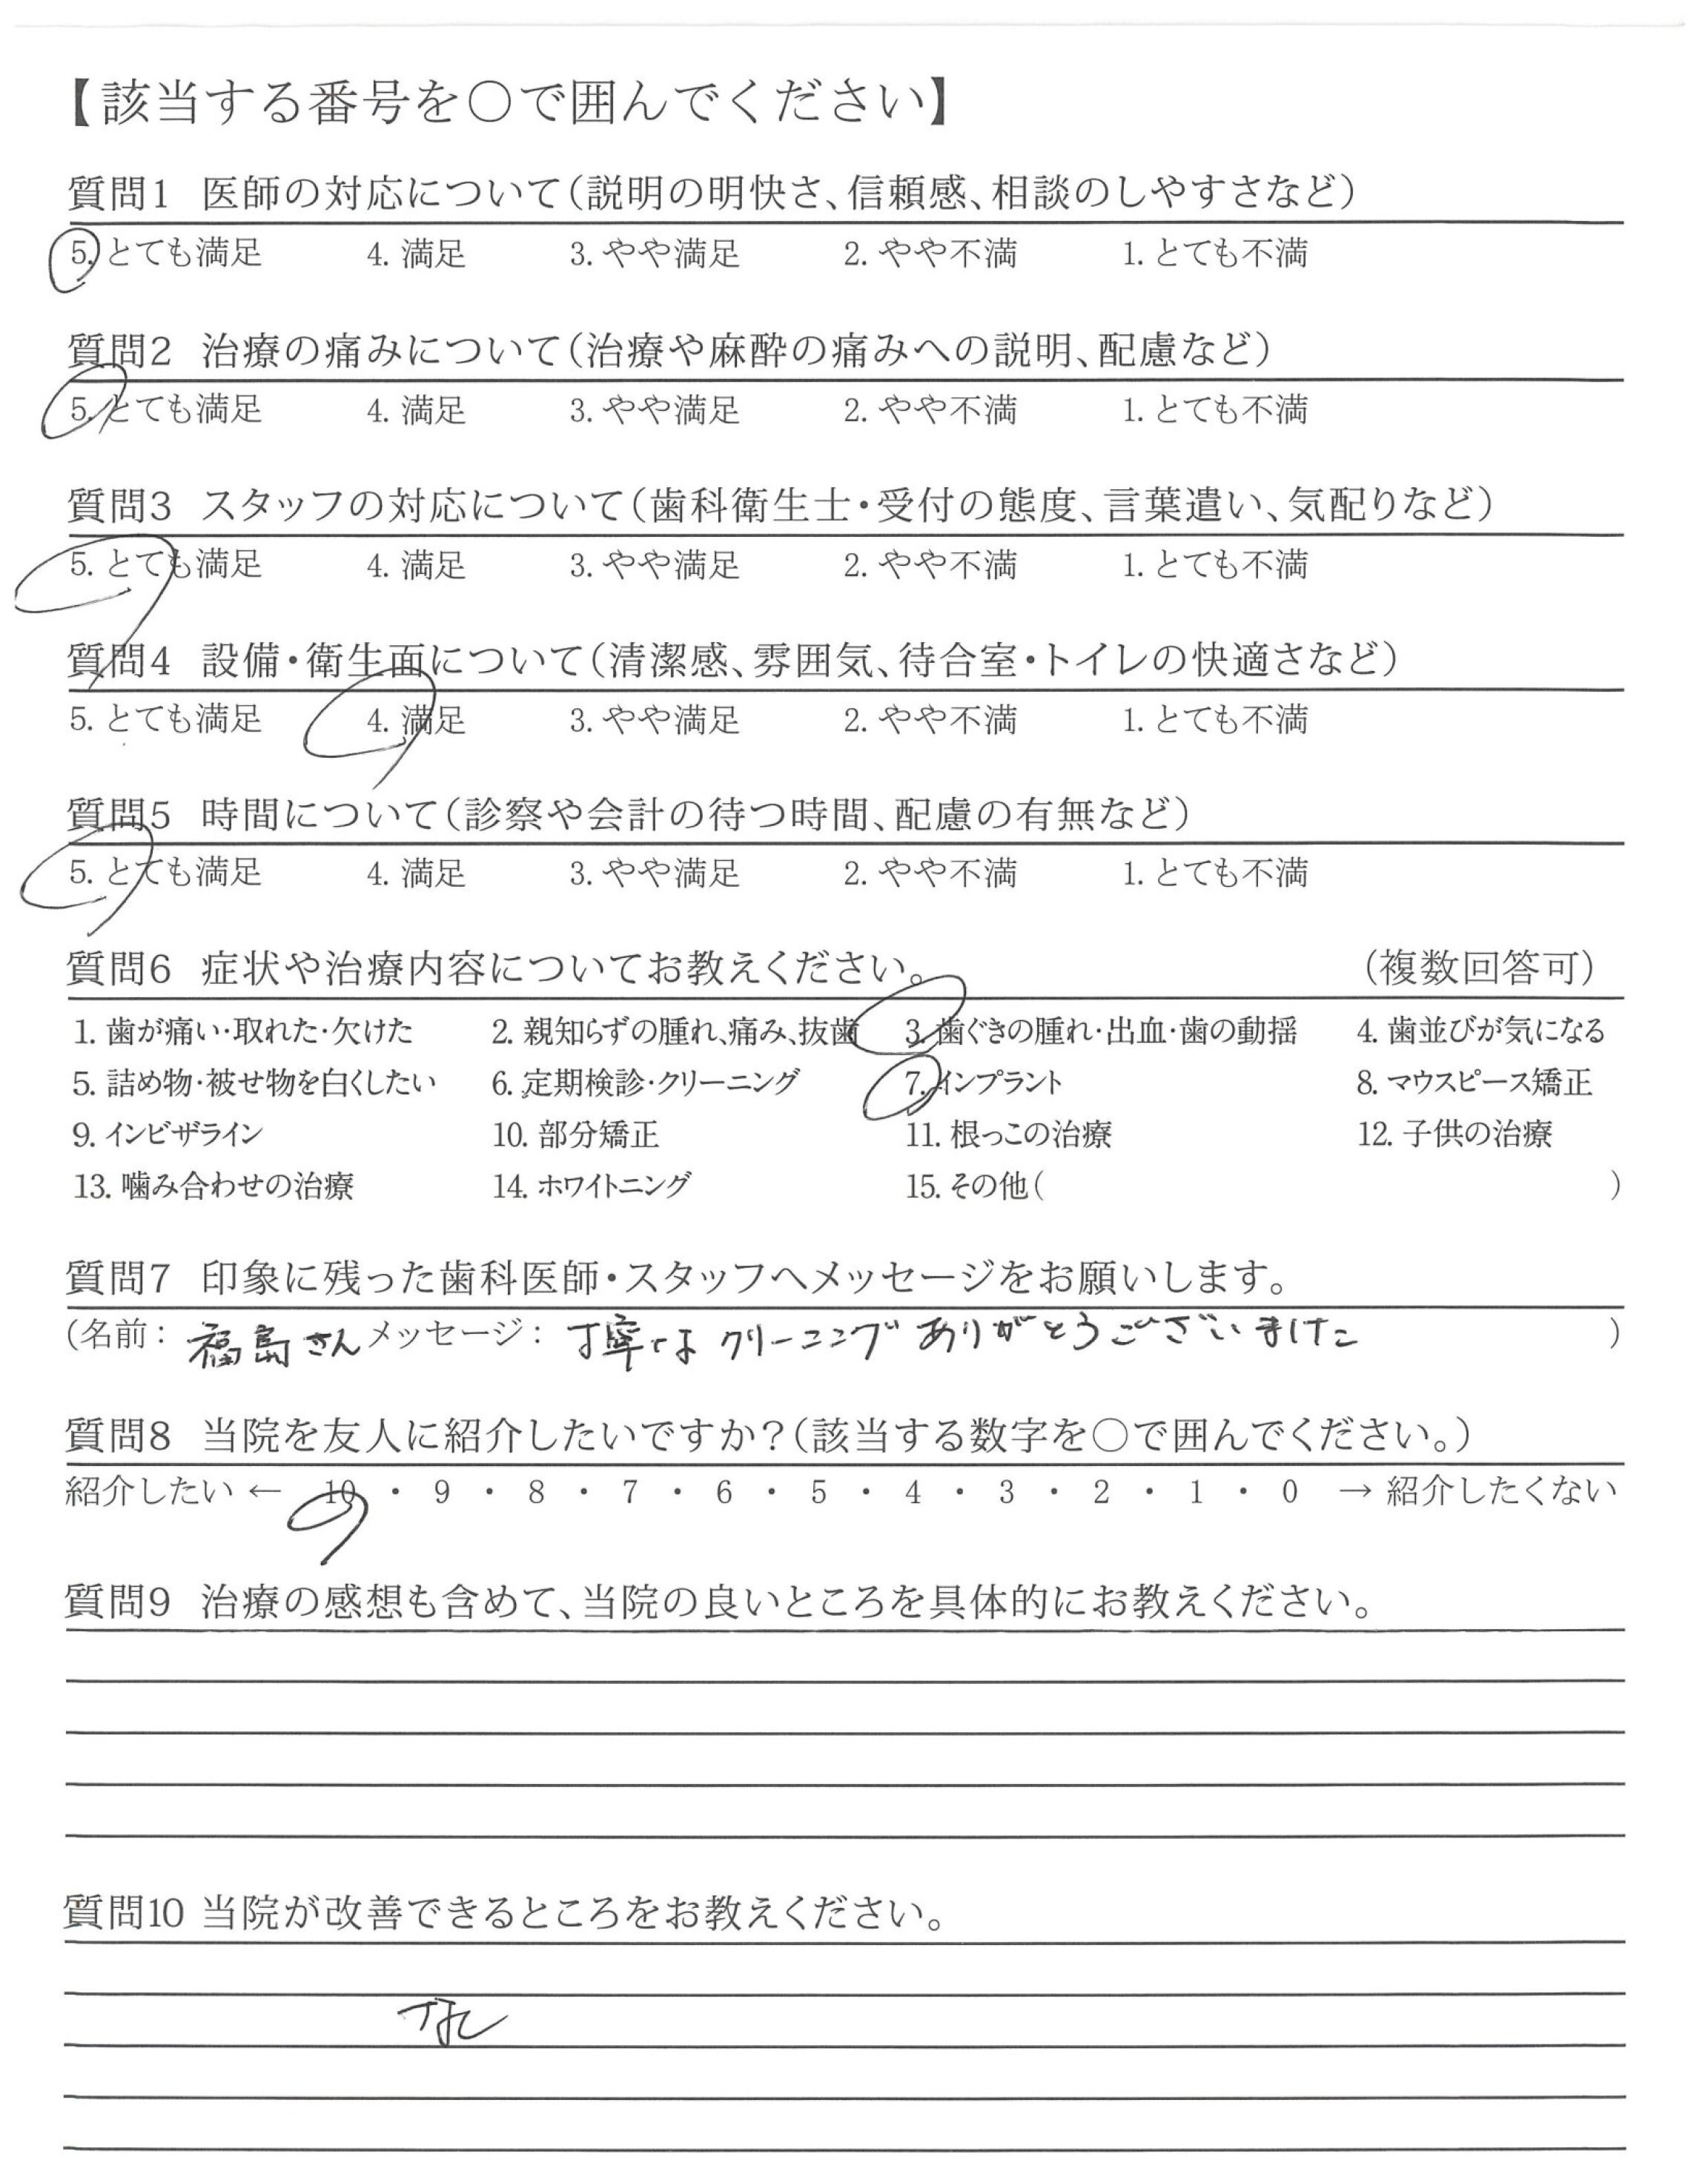 【該当する番号を○で囲んでください】
質問1 医師の対応について(説明の明快さ、信頼感、相談のしやすさなど)
5. とても満足 4. 満足 3. やや満足 2. やや不満 1. とても不満
質問2 治療の痛みについて(治療や麻酔の痛みへの説明、配慮など)
5. とても満足 4. 満足 3. やや満足 2. やや不満 1. とても不満
質問3 スタッフの対応について(歯科衛生士・受付の態度、言葉遣い、気配りなど)
5. とても満足 4. 満足 3. やや満足 2. やや不満 1. とても不満
質問4 設備・衛生面について(清潔感、雰囲気、待合室・トイレの快適さなど)
5. とても満足 4. 満足 3. やや満足 2. やや不満 1. とても不満
質問5 時間について(診察や会計の待つ時間、配慮の有無など)
5. とても満足 4. 満足 3. やや満足 2. やや不満 1. とても不満
質問6 症状や治療内容についてお教えください。 (複数回答可)
1. 歯が痛い・取れた・欠けた 2. 親知らずの腫れ、痛み、抜歯 3. 歯ぐきの腫れ・出血・歯の動揺 4. 歯並びが気になる
5. 詰め物・被せ物を白くしたい 6. 定期検診・クリーニング 7. インプラント 8. マウスピース矯正
9. インビザライン 10. 部分矯正 11. 根っこの治療 12. 子供の治療
13. 噛み合わせの治療 14. ホワイトニング 15. その他( )
質問7 印象に残った歯科医師・スタッフへメッセージをお願いします。
(名前: 福島さん メッセージ: 丁寧なクリーニングありがとうございました )
質問8 当院を友人に紹介したいですか?(該当する数字を○で囲んでください。)
紹介したい ← 10 ・ 9 ・ 8 ・ 7 ・ 6 ・ 5 ・ 4 ・ 3 ・ 2 ・ 1 ・ 0 → 紹介したくない
質問9 治療の感想も含めて、当院の良いところを具体的にお教えください。
質問10 当院が改善できるところをお教えください。
なし